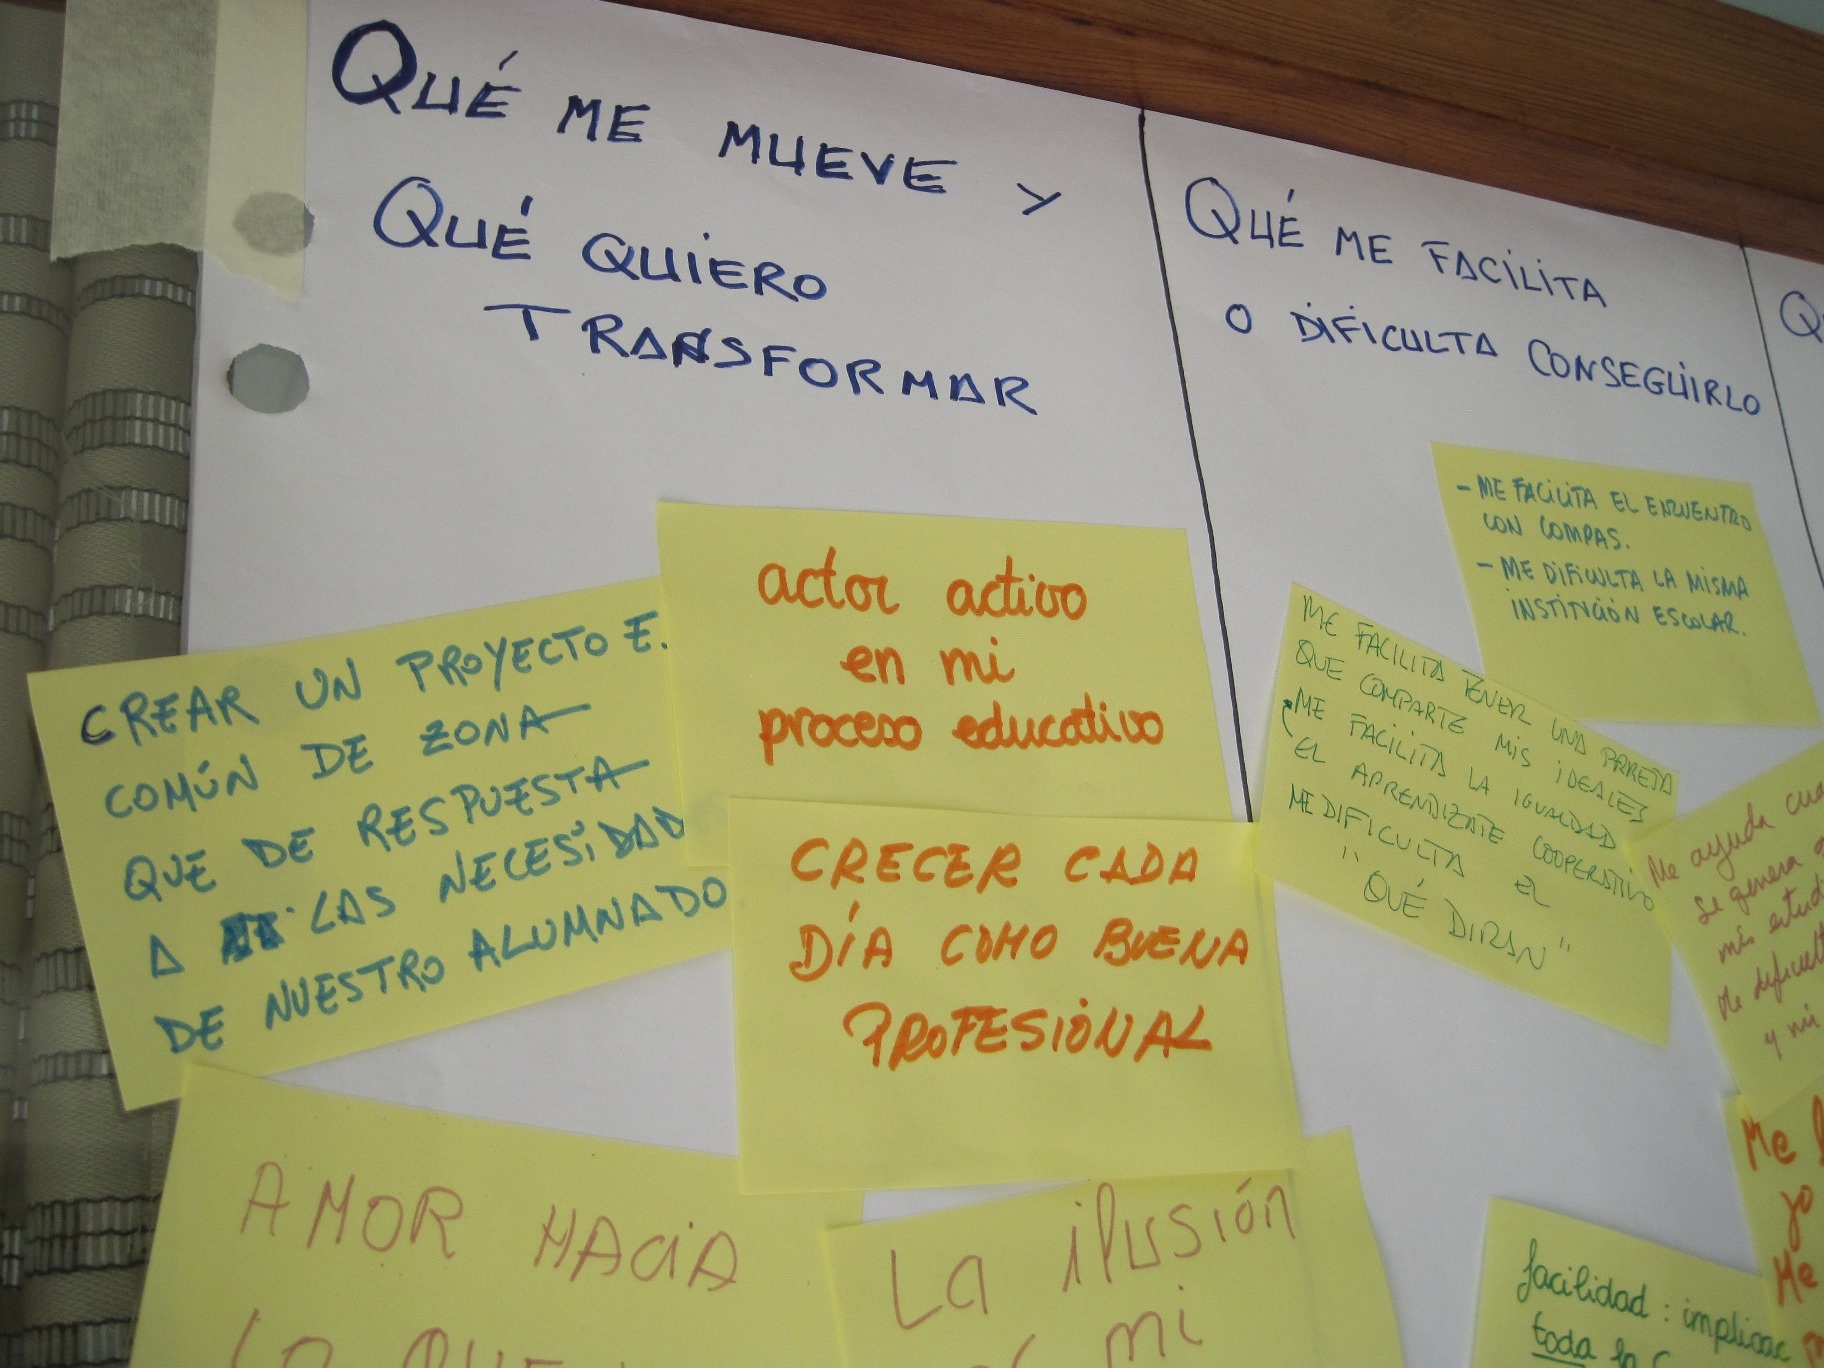 QUÉ ME MUEVE Y
QUÉ QUIERO
TRANSFORMAR
CREAR UN PROYECTO E.
COMÚN DE ZONA
QUE DE RESPUESTA
A LAS NECESIDAD
DE NUESTRO ALUMNADO
actor activo
en mi
proceso educativo
CRECER CADA
DÍA COMO BUENA
PROFESIONAL
AMOR HACIA
LO QUE
LA ilusión
mi
QUÉ ME FACILITA
O DIFICULTA CONSEGUIRLO
- ME FACILITA EL ENCUENTRO
CON COMPAS.
- ME DIFICULTA LA MISMA
INSTITUCIÓN ESCOLAR.
ME FACILITA TENER UNA PAREJA
QUE COMPARTE MIS IDEALES
ME FACILITA LA IGUALDAD
EL APRENDIZATE COOPERATIVO
ME DIFICULTA EL
"QUÉ DIRAN"
Me ayuda
se genera
y mi
Me
yo
Me
facilidad : implicac
toda la